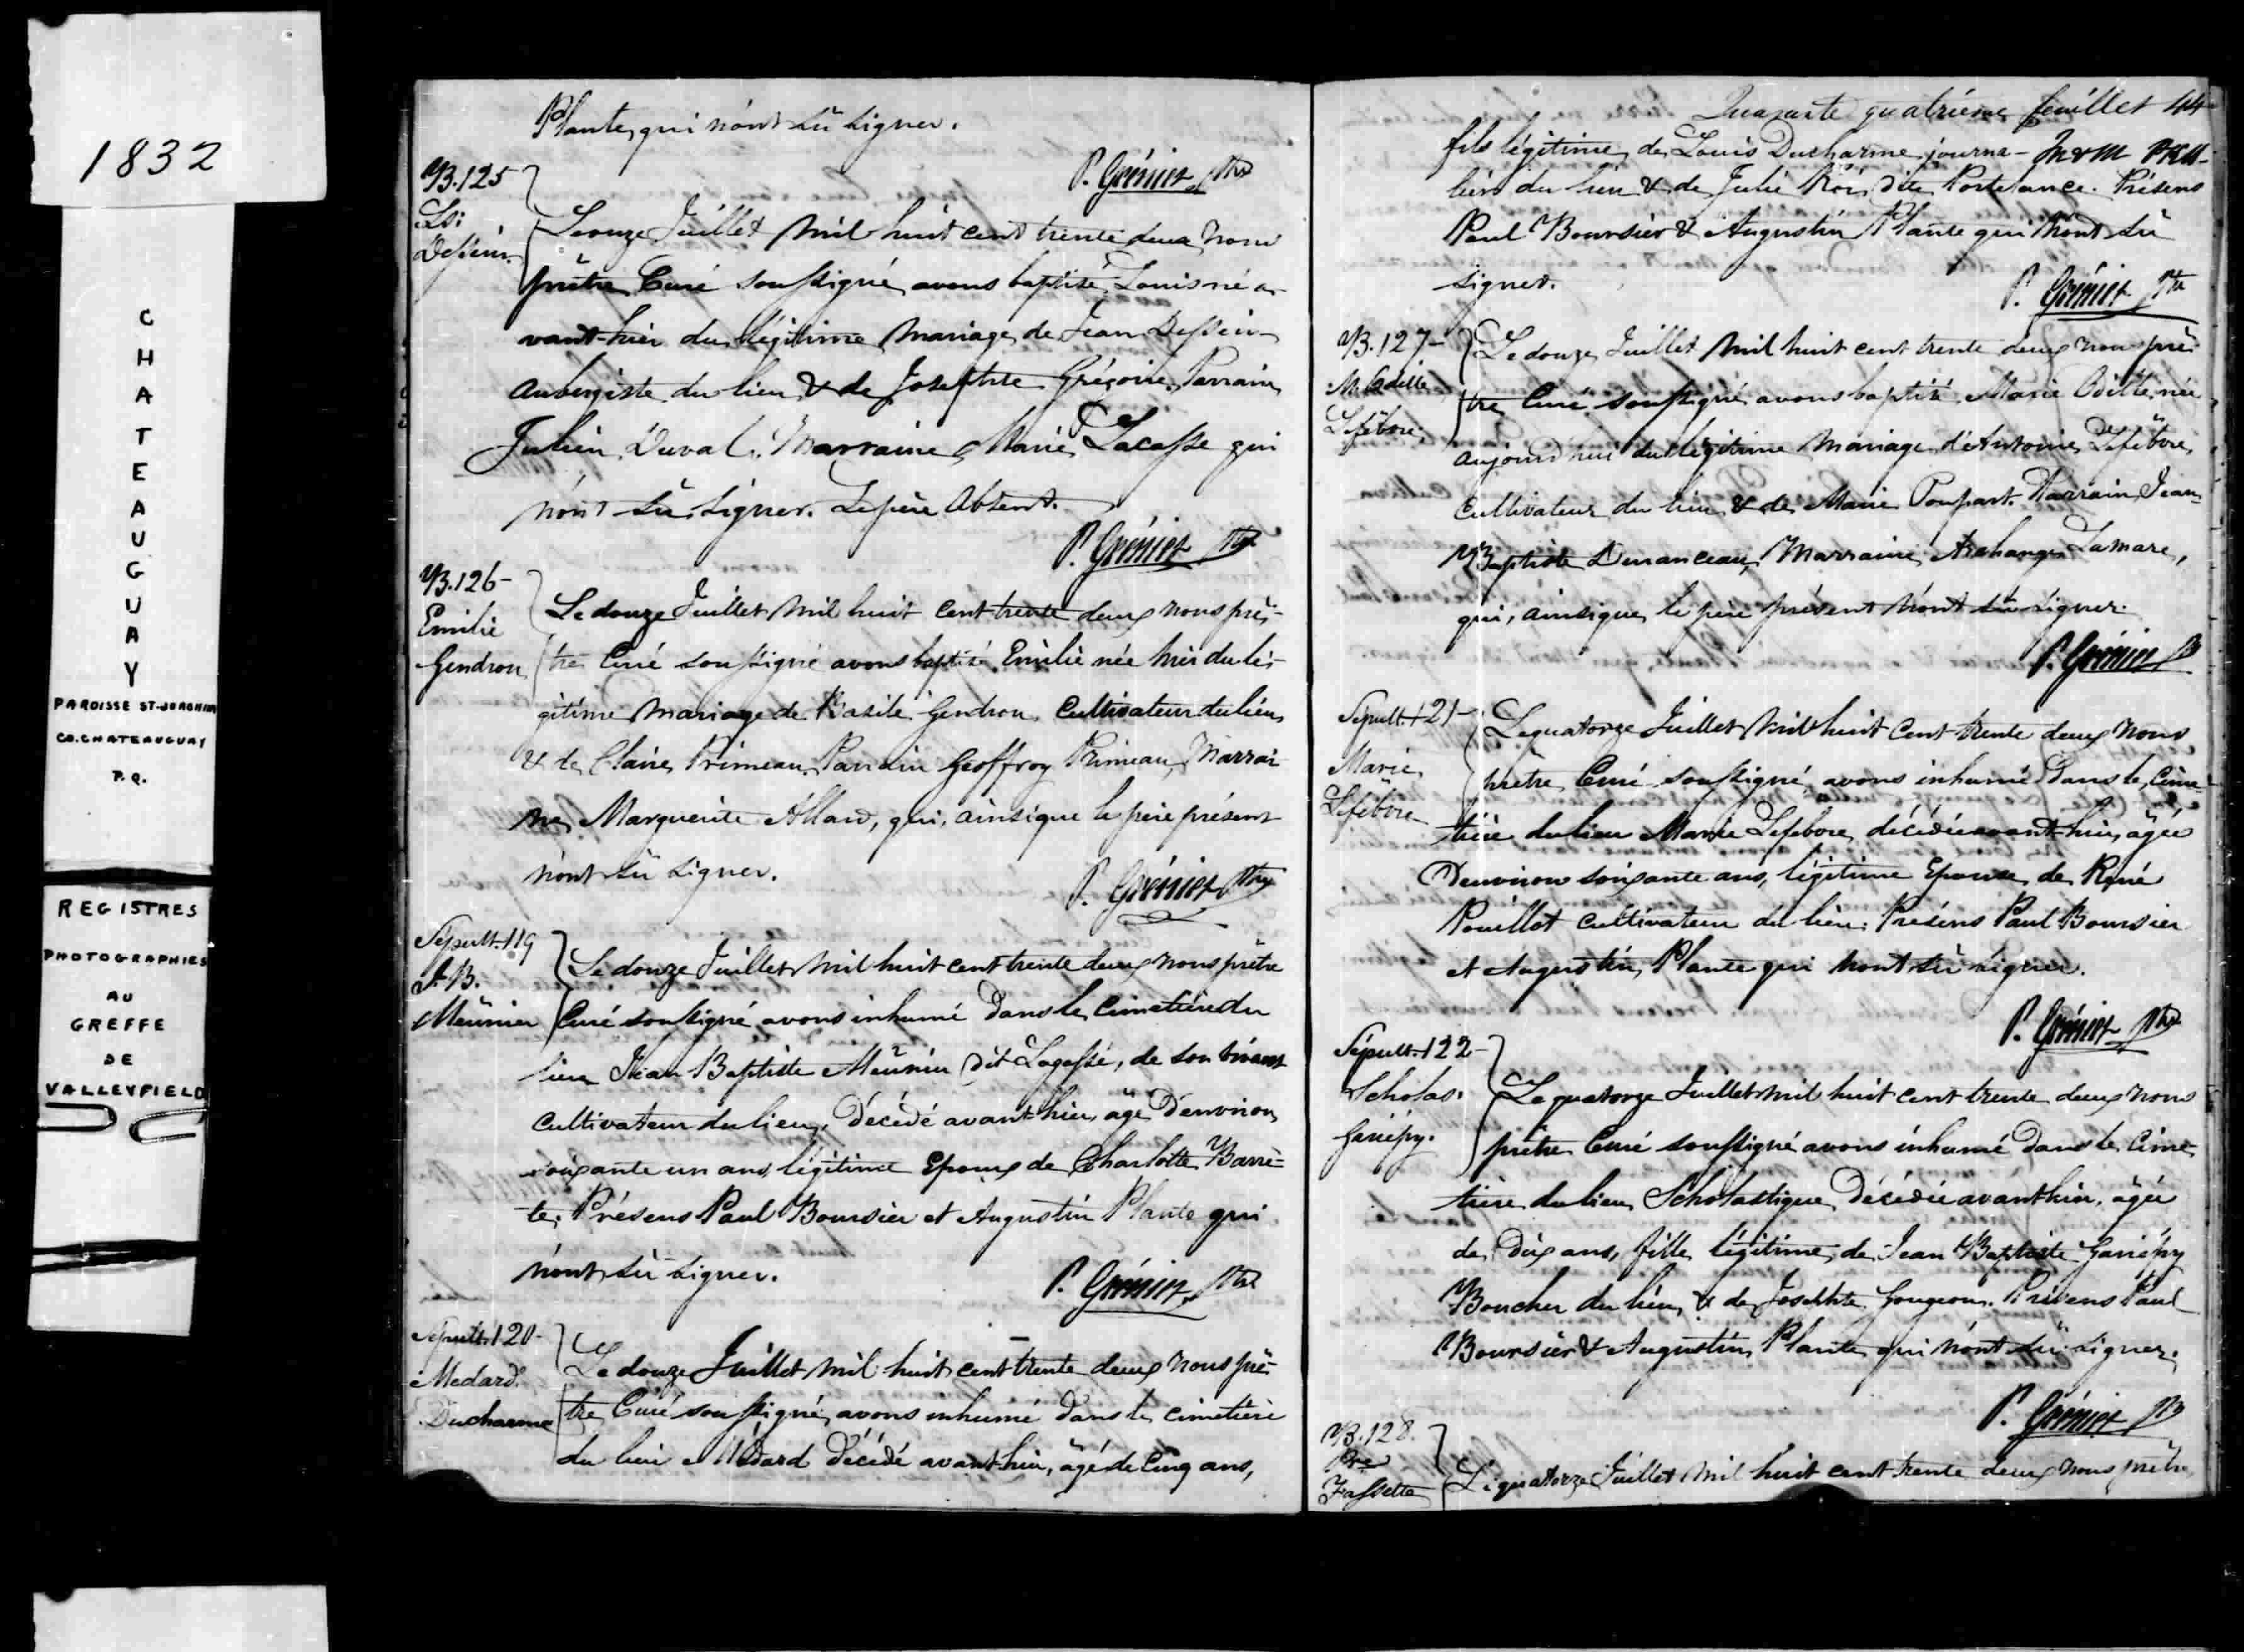 1832
CHATEAUGUAY
PAROISSE ST-JOACHIM
CO. CHATEAUGUAY
P.Q.
REGISTRES
PHOTOGRAPHIES
AU
GREFFE
DE
VALLEYFIELD
Plante, qui n'ont sû signer.
P. Grénier Ptre
B. 125
Ls:
Dessein
Le onze Juillet mil huit cent trente deux nous
prêtre Curé soussigné avons baptisé Louis né a-
vant-hier du légitime mariage de Jean Dessein
aubergiste du lieu & de Josephte Grégoire. Parrain
Julien Duval. Marraine Marie Lacasse qui
n'ont sû signer. Le père absent.
P. Grénier Ptre
B. 126-
Emilie
Gendron
Le douze Juillet mil huit cent trente deux nous prê-
tre Curé soussigné avons baptisé Emilie née hier du lé-
gitime mariage de Basile Gendron Cultivateur du lieu
& de Claire Primeau. Parrain Geoffroy Primeau, Marrai-
ne Marguerite Allard, qui, ainsique le père présent
n'ont sû signer.
P. Grénier Ptre
Sépult. 119
J. B.
Meûnier
Le douze Juillet mil huit cent trente deux nous prêtre
Curé soussigné avons inhumé dans le Cimetière du
lieu Jean Baptiste Meûnier dit Lagassé, de son vivant
cultivateur du lieu, décédé avant-hier, âgé d'environ
soixante un ans, légitime Epoux de Charlotte Barrè-
te. Présens Paul Boursier et Augustin Plante qui
n'ont sû signer.
P. Grénier Ptre
Sépult. 120-
Medard
Ducharme
Le douze Juillet mil huit cent trente deux nous prê-
tre Curé soussigné avons inhumé dans le cimetière
du lieu Médard décédé avant-hier, âgé de Cinq ans,
Quarante quatrième feuillet 44
fils légitime de Louis Ducharme journa-
lier du lieu & de Julie Roi dite Portelance. Présens
Paul Boursier & Augustin Plante qui n'ont sû
signer.
P. Grénier Ptre
B. 127-
M. Odille
Lefêbvre
Le douze Juillet mil huit cent trente deux nous prê-
tre Curé soussigné avons baptisé Marie Odille, née
aujourd'hui du légitime mariage d'Antoine Lefêbvre,
Cultivateur du lieu & de Marie Poupart. Parrain Jean-
Baptiste Duranceau, Marraine Archange Lamare,
qui, ainsique le père présent n'ont sû signer.
P. Grénier Ptre
Sépult. 121-
Marie
Lefebvre
Le quatorze Juillet mil huit cent trente deux nous
prêtre Curé soussigné avons inhumé dans le Cime-
tière du lieu Marie Lefebvre, décédée avant-hier, âgée
d'environ soixante ans, légitime Epouse de René
Pouillot cultivateur du lieu. Présens Paul Boursier
et Augustin Plante qui n'ont sû signer.
P. Grénier Ptre
Sépult. 122-
Scholas.
Gariépy.
Le quatorze Juillet mil huit cent trente deux nous
prêtre Curé soussigné avons inhumé dans le Cime-
tière du lieu Scholastique, décédée avant hier, âgée
de dix ans, fille légitime de Jean Baptiste Gariépy
Boucher du lieu & de Josephte Gougeon. Présens Paul
Boursier & Augustin Plante qui n'ont sû signer.
P. Grénier Ptre
B. 128.
Pre
Fassette
Le quatorze Juillet mil huit cent trente deux nous prêtre